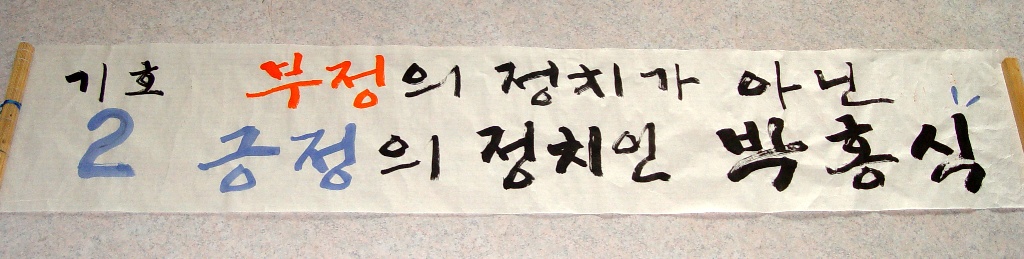 기호 부정의 정치가 아닌
2 긍정의 정치인 박홍식